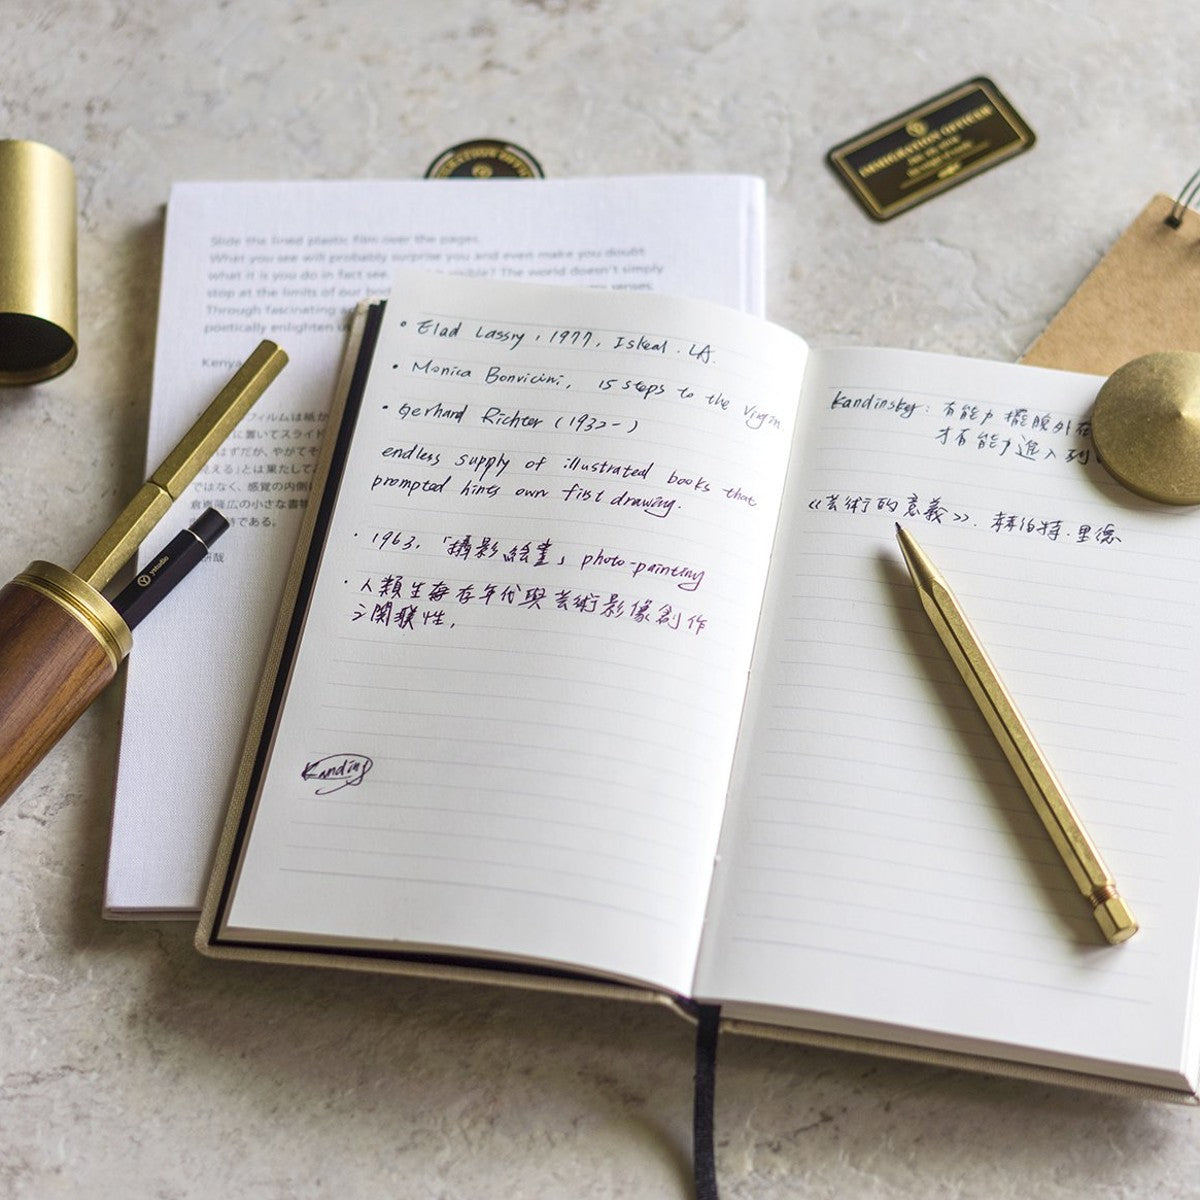 IMMIGRATION OFFICER
Slide the lined plastic film over the pages.
What you see will probably surprise you and even make you doubt
what it is you do in fact see. visible? The world doesn't simply
stop at the limits of our senses.
Through fascinating
poetically enlighten
Kenya
フィルムは紙か
に置いてスライド
はずだが、やがてそ
見える」とは果たして
ではなく、感覚の内側
倉嶌隆広の小さな書物
である。
ystudio
• Elad Lassry, 1977, Isreal. LA.
• Monica Bonvicini, 15 steps to the Virgin
• Gerhard Richter (1932-)
endless supply of illustrated books that
prompted hints own first drawing.
· 1963,「攝影繪畫」photo-painting
· 人類生存年代與芸術影像創作
之関聯性,
Kandins
Kandinsky: 有能力擺脫外在
才有能力進入到
《芸術的意義》. 赫伯特·里德